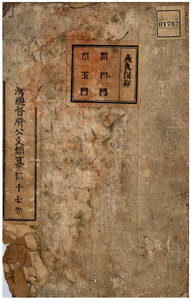 01782
永久保存
第四門
第五門
湾總督府公文類纂第十七卷